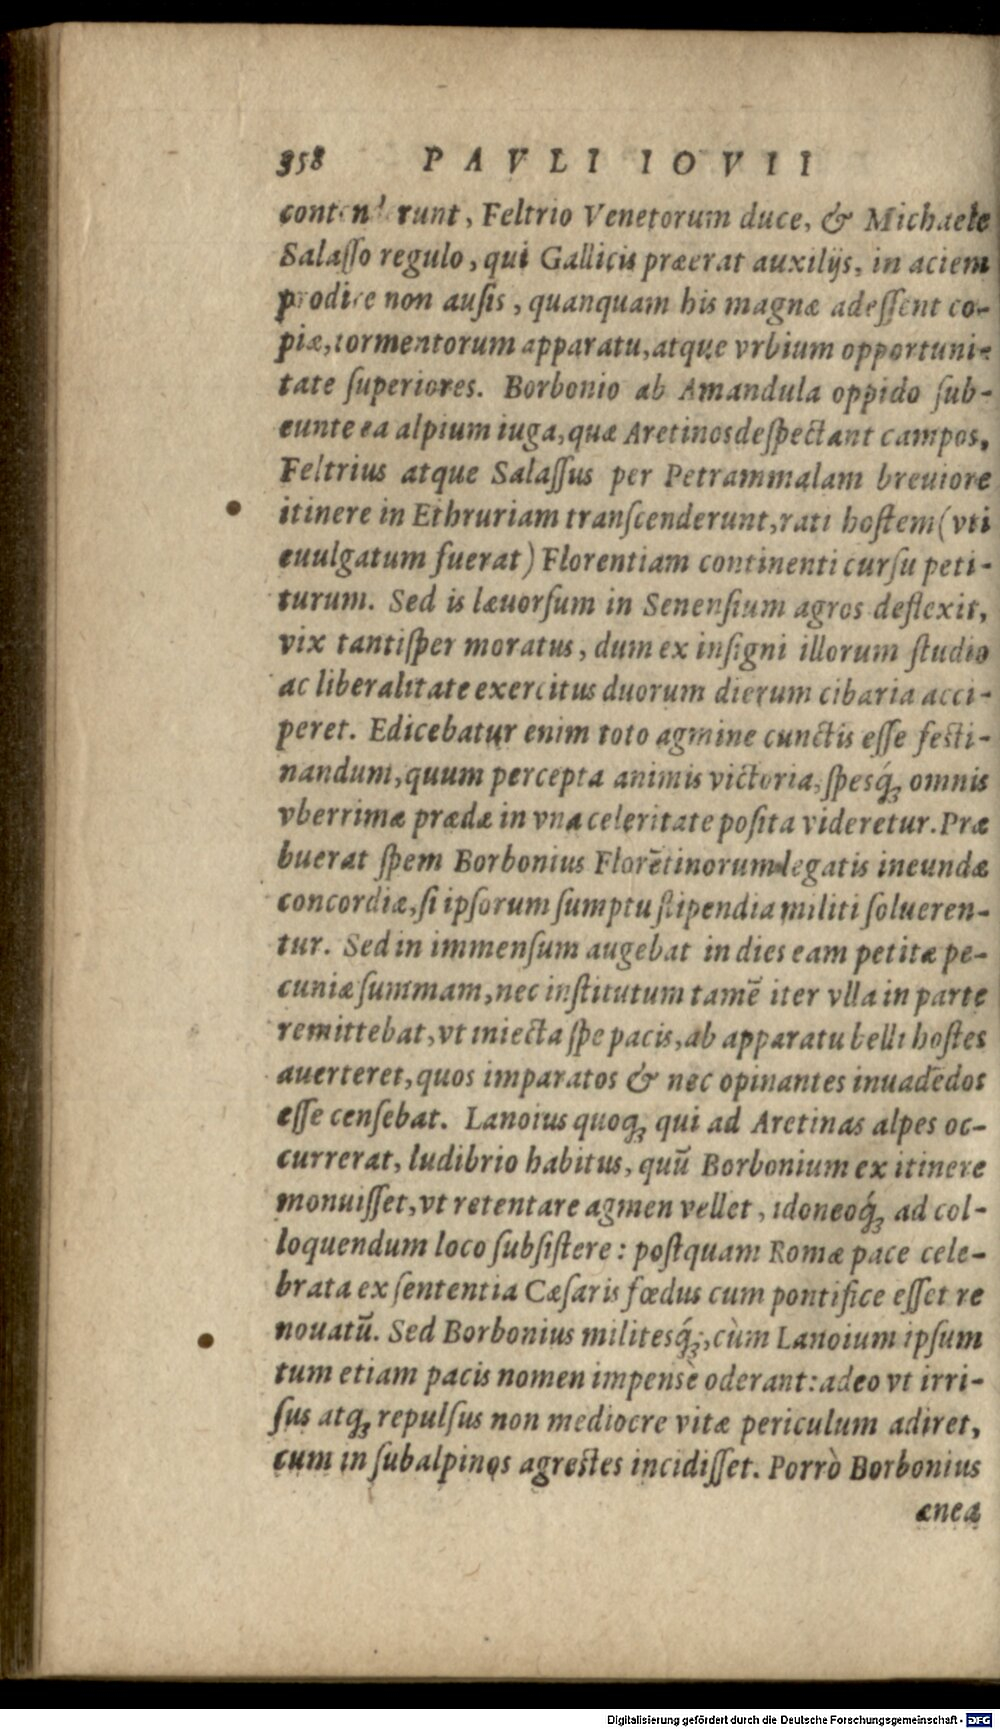 358 PAVLI IOVII
contenderunt, Feltrio Venetorum duce, & Michaele
Salasso regulo, qui Gallicis præerat auxilijs, in aciem
prodire non ausis, quanquam his magnæ adessent co-
piæ, tormentorum apparatu, atque vrbium opportuni-
tate superiores. Borbonio ab Amandula oppido sub-
eunte ea alpium iuga, quæ Aretinos despectant campos,
Feltrius atque Salassus per Petrammalam breuiore
itinere in Ethruriam transcenderunt, rati hostem (vti
euulgatum fuerat) Florentiam continenti cursu peti-
turum. Sed is læuorsum in Senensium agros deflexit,
vix tantisper moratus, dum ex insigni illorum studio
ac liberalitate exercitus duorum dierum cibaria acci-
peret. Edicebatur enim toto agmine cunctis esse festi-
nandum, quum percepta animis victoria, spesq́ꝫ omnis
vberrimæ prædæ in vna celeritate posita videretur. Præ
buerat spem Borbonius Florētinorum legatis ineundæ
concordiæ, si ipsorum sumptu stipendia militi solueren-
tur. Sed in immensum augebat in dies eam petitæ pe-
cuniæ summam, nec institutum tamē iter vlla in parte
remittebat, vt iniecta spe pacis, ab apparatu belli hostes
auerteret, quos imparatos & nec opinantes inuadēdos
esse censebat. Lanoius quoqꝫ qui ad Aretinas alpes oc-
currerat, ludibrio habitus, quū Borbonium ex itinere
monuisset, vt retentare agmen vellet, idoneoq́ꝫ ad col-
loquendum loco subsistere: postquam Romæ pace cele-
brata ex sententia Cæsaris fœdus cum pontifice esset re
nouatū. Sed Borbonius militesq́ꝫ, cùm Lanoium ipsum
tum etiam pacis nomen impensè oderant: adeo vt irri-
sus atqꝫ repulsus non mediocre vitæ periculum adiret,
cum in subalpinos agrestes incidisset. Porrò Borbonius
ænea
Digitalisierung gefördert durch die Deutsche Forschungsgemeinschaft - DFG